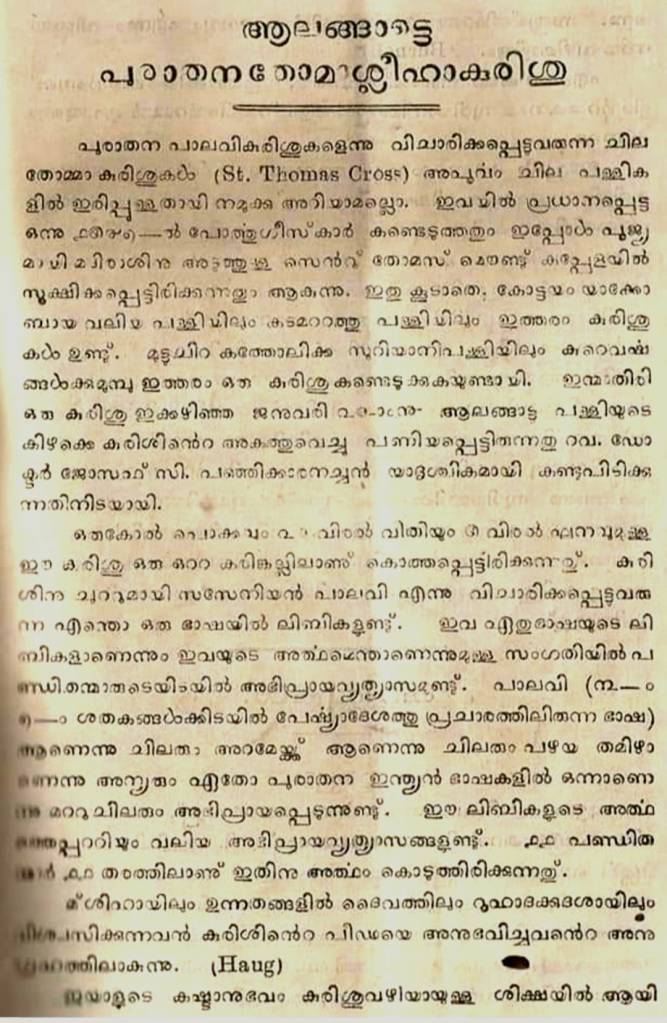 ആലങ്ങാട്ടെ
പുരാതനതോമാശ്ലീഹാകുരിശു
പുരാതന പാലവികുരിശുകളെന്നു വിചാരിക്കപ്പെട്ടുവരുന്ന ചില
തോമ്മാ കുരിശുകൾ (St. Thomas Cross) അപൂൎവം ചില പള്ളിക
ളിൽ ഇരിപ്പുള്ളതായി നമുക്കു അറിയാമല്ലൊ. ഇവയിൽ പ്രധാനപ്പെട്ട
ഒന്നു ൽ പോൎത്തുഗീസ്കാർ കണ്ടെടുത്തതും ഇപ്പോൾ പൂജ്യ
മായി മദിരാശിനു അടുത്തുള്ള സെൻറ് തോമസ് മൌണ്ട് കപ്പേളയിൽ
സൂക്ഷിക്കപ്പെട്ടിരിക്കുന്നതും ആകുന്നു. ഇതു കൂടാതെ, കോട്ടയം യാക്കോ
ബായ വലിയ പള്ളിയിലും കടമററത്തു പള്ളിയിലും ഇത്തരം കുരിശു
കൾ ഉണ്ട്. മുട്ടുചിറ കത്തോലിക്ക സുറിയാനിപള്ളിയിലും കുറെവഷ
ങ്ങൾക്കുമുമ്പു ഇത്തരം ഒരു കുരിശു കണ്ടെടുക്കുകയുണ്ടായി. ഇന്മാതിരി
ഒരു കുരിശു ഇക്കഴിഞ്ഞ ജനുവരി ആലങ്ങാട്ടു പള്ളിയുടെ
കിഴക്കെ കുരിശിൻെറ അകത്തുവെച്ചു പണിയപ്പെട്ടിരുന്നതു റവ. ഡോ
ക്ടർ ജോസഫ് സി. പഞ്ഞിക്കാരനച്ചൻ യാദൃശ്ചികമായി കണ്ടുപിടിക്കു
ന്നതിനിടയായി.
ഒരുകോൽ പൊക്കവും വിരൽ വീതിയും വിരൽ ഘനവുമുള്ള
ഈ കുരിശു ഒരു ഒററ കരിങ്കല്ലിലാണു് കൊത്തപ്പെട്ടിരിക്കുന്നത്. കുരി
ശിനു ചുററുമായി സസേനിയൻ പാലവി എന്നു വിചാരിക്കപ്പെട്ടുവരു
ന്ന എന്തൊ ഒരു ഭാഷയിൽ ലിബികളുണ്ട്. ഇവ ഏതുഭാഷയുടെ ലി
ബികളാണെന്നും ഇവയുടെ അൎത്ഥമെന്താണെന്നുമുള്ള സംഗതിയിൽ പ
ണ്ഡിതന്മാരുടെയിടയിൽ അഭിപ്രായവ്യത്യാസമുണ്ട്. പാലവി (൩—
൯—ാം ശതകങ്ങൾക്കിടയിൽ പേഷ്യാദേശത്തു പ്രചാരത്തിലിരുന്ന ഭാഷ)
ആണെന്നു ചിലരും അറമേയ്ക്ക് ആണെന്നു ചിലരും പഴയ തമിഴാ
ണെന്നു അന്യരും ഏതോ പുരാതന ഇന്ത്യൻ ഭാഷകളിൽ ഒന്നാണെ
ന്നു മററുചിലരും അഭിപ്രായപ്പെടുന്നുണ്ട്. ഈ ലിബികളുടെ അൎത്ഥ
ത്തെപ്പററിയും വലിയ അഭിപ്രായവ്യത്യാസങ്ങളുണ്ട്. ൧൧ പണ്ഡിത
ന്മാർ ൧൧ തരത്തിലാണു് ഇതിനു അൎത്ഥം കൊടുത്തിരിക്കുന്നത്.
മ്ശിഹായിലും ഉന്നതങ്ങളിൽ ദൈവത്തിലും റൂഹാദക്കുദശായിലും
വിശ്വസിക്കുന്നവൻ കുരിശിൻെറ പീഡയെ അനുഭവിച്ചവൻെറ അനു
ഗ്രഹത്തിലാകുന്നു. (Haug)
ഇയാളുടെ കഷ്ടാനുഭവം കുരിശുവഴിയായുള്ള ശിക്ഷയിൽ ആയി